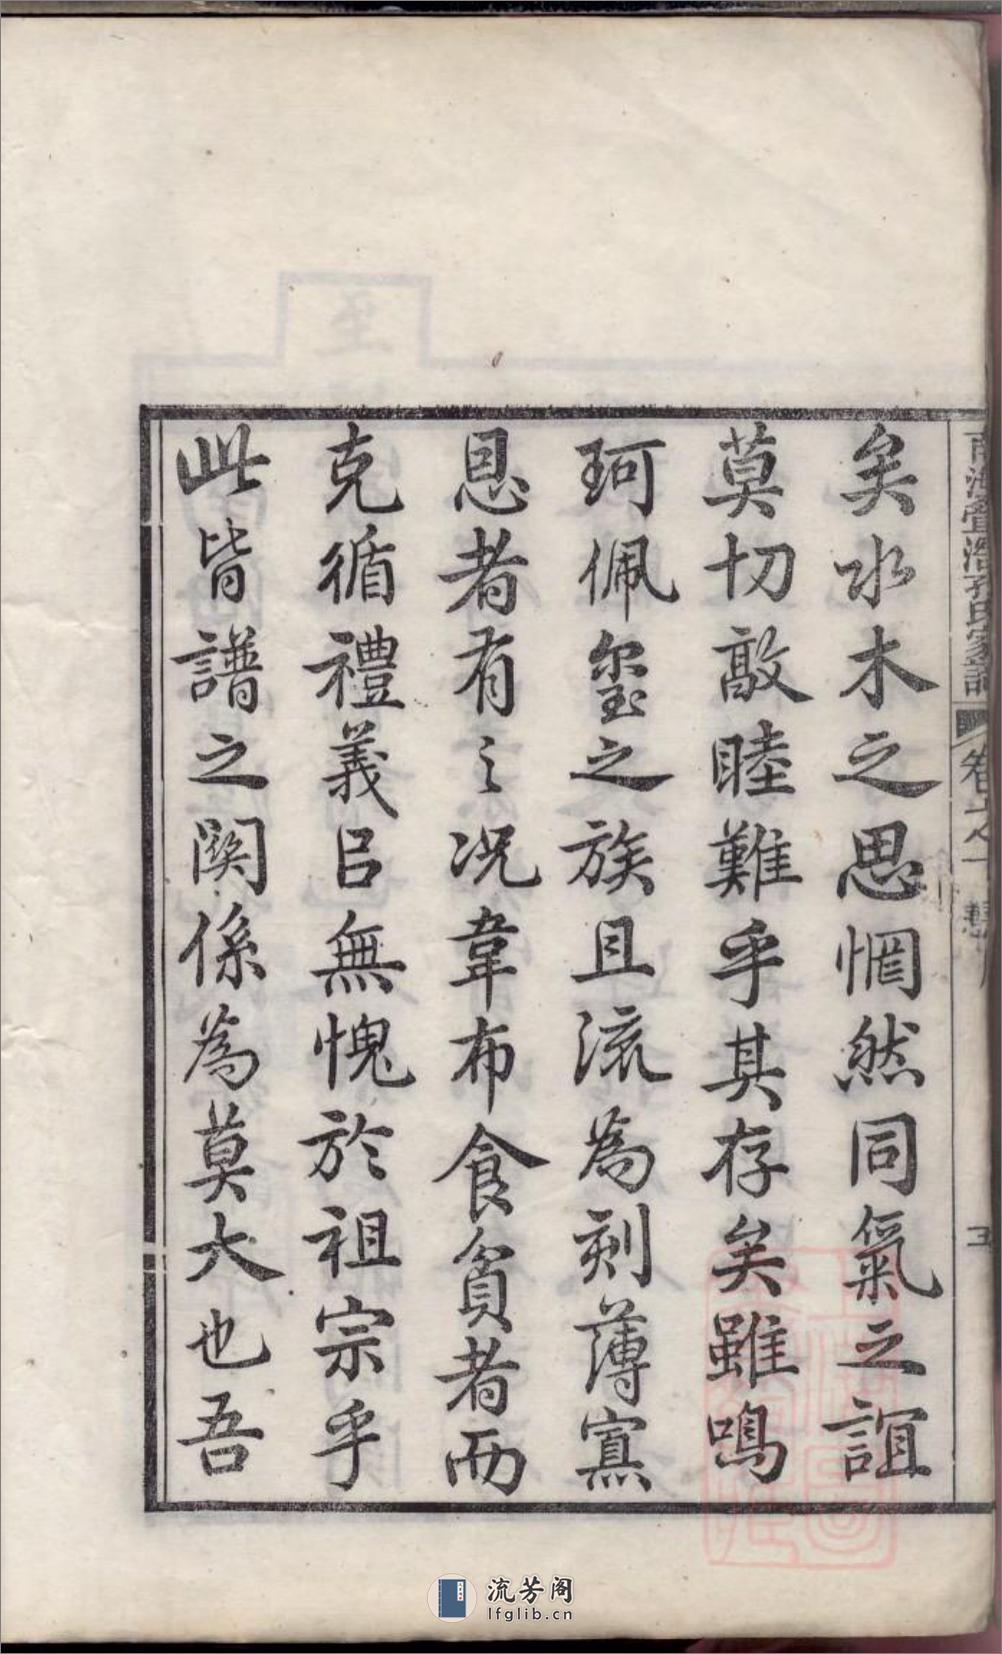 矣水木之思惘然同氣之誼
莫切敦睦難乎其存矣雖鳴
珂佩玺之族且流為刻薄寡
恩者有之况韋布食貧者而
克循禮義㠯無愧於祖宗乎
此皆譜之関係為莫大也吾
南海疊滘孔氏家譜
卷之一
五
流芳阁
lfglib.cn